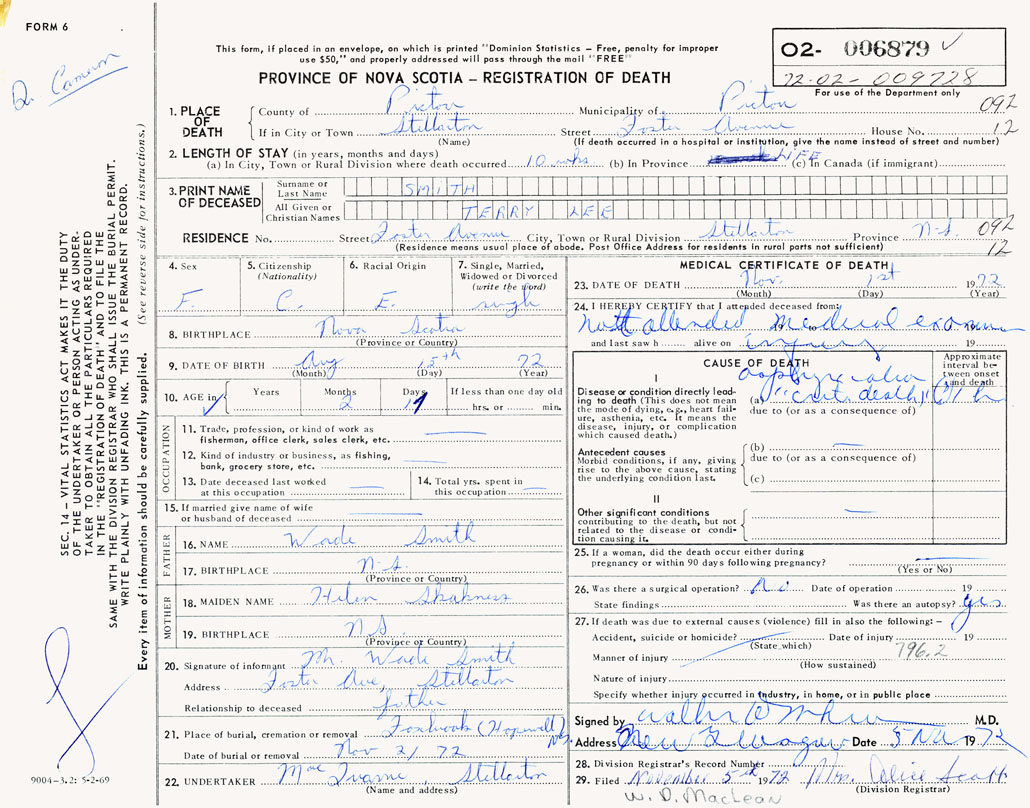 FORM 6
Dr. Cameron
This form, if placed in an envelope, on which is printed "Dominion Statistics – Free, penalty for improper
use $50," and properly addressed will pass through the mail "FREE"
PROVINCE OF NOVA SCOTIA – REGISTRATION OF DEATH
02- 006879 ✓
72-02-009728
For use of the Department only
1. PLACE OF DEATH
County of Pictou Municipality of Pictou 092
If in City or Town Stellarton Street Foster Avenue House No. 12
(Name) (If death occurred in a hospital or institution, give the name instead of street and number)
2. LENGTH OF STAY (in years, months and days)
(a) In City, Town or Rural Division where death occurred 10 wks (b) In Province LIFE (c) In Canada (if immigrant)
3. PRINT NAME OF DECEASED
Surname or Last Name SMITH
All Given or Christian Names TERRY LEE
RESIDENCE No. Street Foster Avenue City, Town or Rural Division Stellarton Province N.S. 092
(Residence means usual place of abode. Post Office Address for residents in rural parts not sufficient) 12
4. Sex F.
5. Citizenship (Nationality) C.
6. Racial Origin E.
7. Single, Married, Widowed or Divorced (write the word) single
8. BIRTHPLACE Nova Scotia
(Province or Country)
9. DATE OF BIRTH Aug 15th 72
(Month) (Day) (Year)
10. AGE in Years Months Days If less than one day old
2 17 hrs. or min.
OCCUPATION
11. Trade, profession, or kind of work as
fisherman, office clerk, sales clerk, etc.
12. Kind of industry or business, as fishing,
bank, grocery store, etc.
13. Date deceased last worked
at this occupation
14. Total yrs. spent in
this occupation
15. If married give name of wife
or husband of deceased
FATHER
16. NAME Wade Smith
17. BIRTHPLACE N.S.
(Province or Country)
MOTHER
18. MAIDEN NAME Helen
19. BIRTHPLACE N.S.
(Province or Country)
20. Signature of informant M. Wade Smith
Address Foster Ave, Stellarton
Relationship to deceased father
21. Place of burial, cremation or removal (Hopewell) N.S.
Date of burial or removal Nov 2/72
22. UNDERTAKER Stellarton
(Name and address)
MEDICAL CERTIFICATE OF DEATH
23. DATE OF DEATH Nov. 1st 1972
(Month) (Day) (Year)
24. I HEREBY CERTIFY that I attended deceased from:
not attended medical
19 to 19
and last saw h alive on 19
CAUSE OF DEATH
Approximate interval between onset and death
I
Disease or condition directly leading to death (This does not mean
the mode of dying, e.g., heart failure, asthenia, etc. It means the
disease, injury, or complication
which caused death.)
(a) "crib death"
due to (or as a consequence of)
Antecedent causes
Morbid conditions, if any, giving
rise to the above cause, stating
the underlying condition last.
(b)
due to (or as a consequence of)
(c)
II
Other significant conditions
contributing to the death, but not
related to the disease or condition causing it.
25. If a woman, did the death occur either during
pregnancy or within 90 days following pregnancy?
(Yes or No)
26. Was there a surgical operation? No Date of operation 19
State findings Was there an autopsy? yes
27. If death was due to external causes (violence) fill in also the following: –
Accident, suicide or homicide? Date of injury 19
(State which)
Manner of injury 796.2
(How sustained)
Nature of injury
Specify whether injury occurred in industry, in home, or in public place
Signed by M.D.
Address New Glasgow Date 5 Nov 1972
28. Division Registrar's Record Number
29. Filed November 5th 1972 Mrs. Alice Scott
(Division Registrar)
W. D. MacLean
SEC. 14 – VITAL STATISTICS ACT MAKES IT THE DUTY
OF THE UNDERTAKER OR PERSON ACTING AS UNDERTAKER TO OBTAIN ALL THE PARTICULARS REQUIRED
IN THE "REGISTRATION OF DEATH" AND TO FILE THE
SAME WITH THE DIVISION REGISTRAR WHO SHALL ISSUE THE BURIAL PERMIT.
WRITE PLAINLY WITH UNFADING INK. THIS IS A PERMANENT RECORD.
Every item of information should be carefully supplied. (See reverse side for instructions.)
9004-3.2: 5-2-69